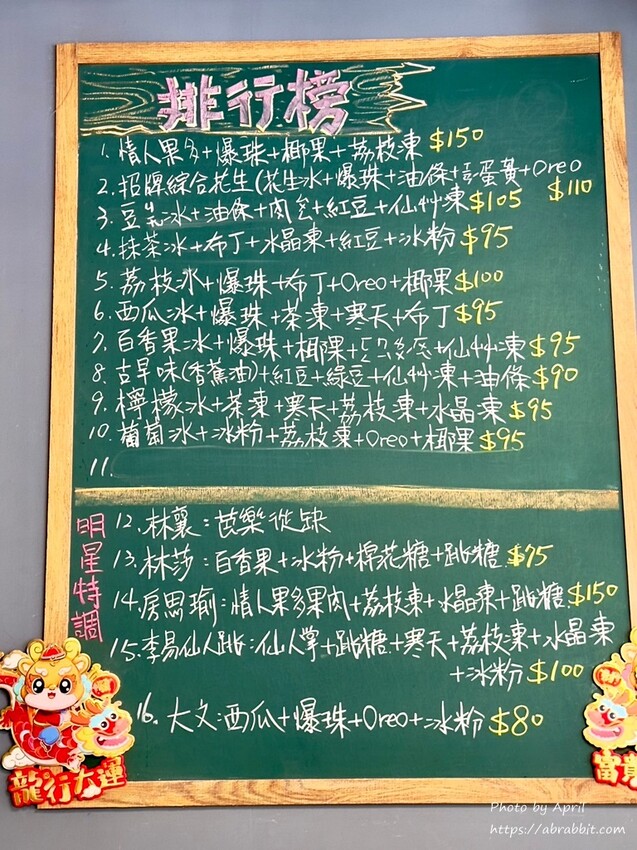 排行榜
1. 情人果多+爆珠+椰果+荔枝凍 $150
2. 招牌綜合花生(花生冰+爆珠+油條+蛋黃+Oreo $110
3. 豆乳冰+油條+肉+紅豆+仙艸凍 $105
4. 抹茶冰+布丁+水晶凍+紅豆+冰粉 $95
5. 荔枝冰+爆珠+布丁+Oreo+椰果 $100
6. 西瓜冰+爆珠+茶凍+寒天+布丁 $95
7. 百香果冰+爆珠+椰果+仙艸凍 $95
8. 古早味(香蕉油)+紅豆+綠豆+仙艸凍+油條 $90
9. 檸檬冰+茶凍+寒天+荔枝凍+水晶凍 $95
10. 葡萄冰+冰粉+荔枝凍+Oreo+椰果 $95
11.
明星特調
12. 林襄:芭樂從缺
13. 林莎:百香果+冰粉+棉花糖+跳糖 $75
14. 房思瑜:情人果多果肉+荔枝凍+水晶凍+跳糖 $150
15. 李易仙人跳:仙人掌+跳糖+寒天+荔枝凍+水晶凍
+冰粉 $100
16. 大文:西瓜+爆珠+Oreo+冰粉 $80
龍行大運
Photo by April
https://abrabbit.com